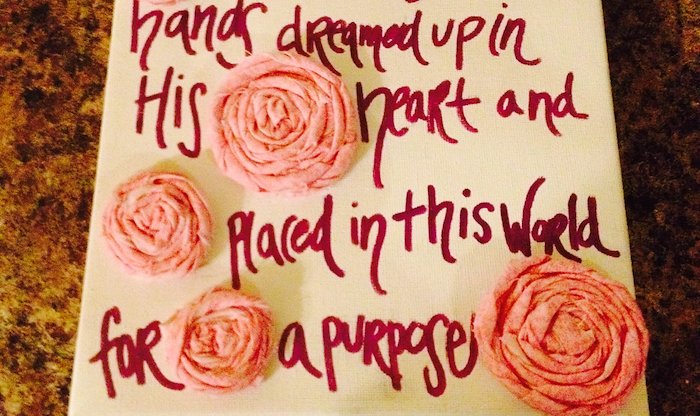 hands dreamed up in
His heart and
placed in this world
for a purpose